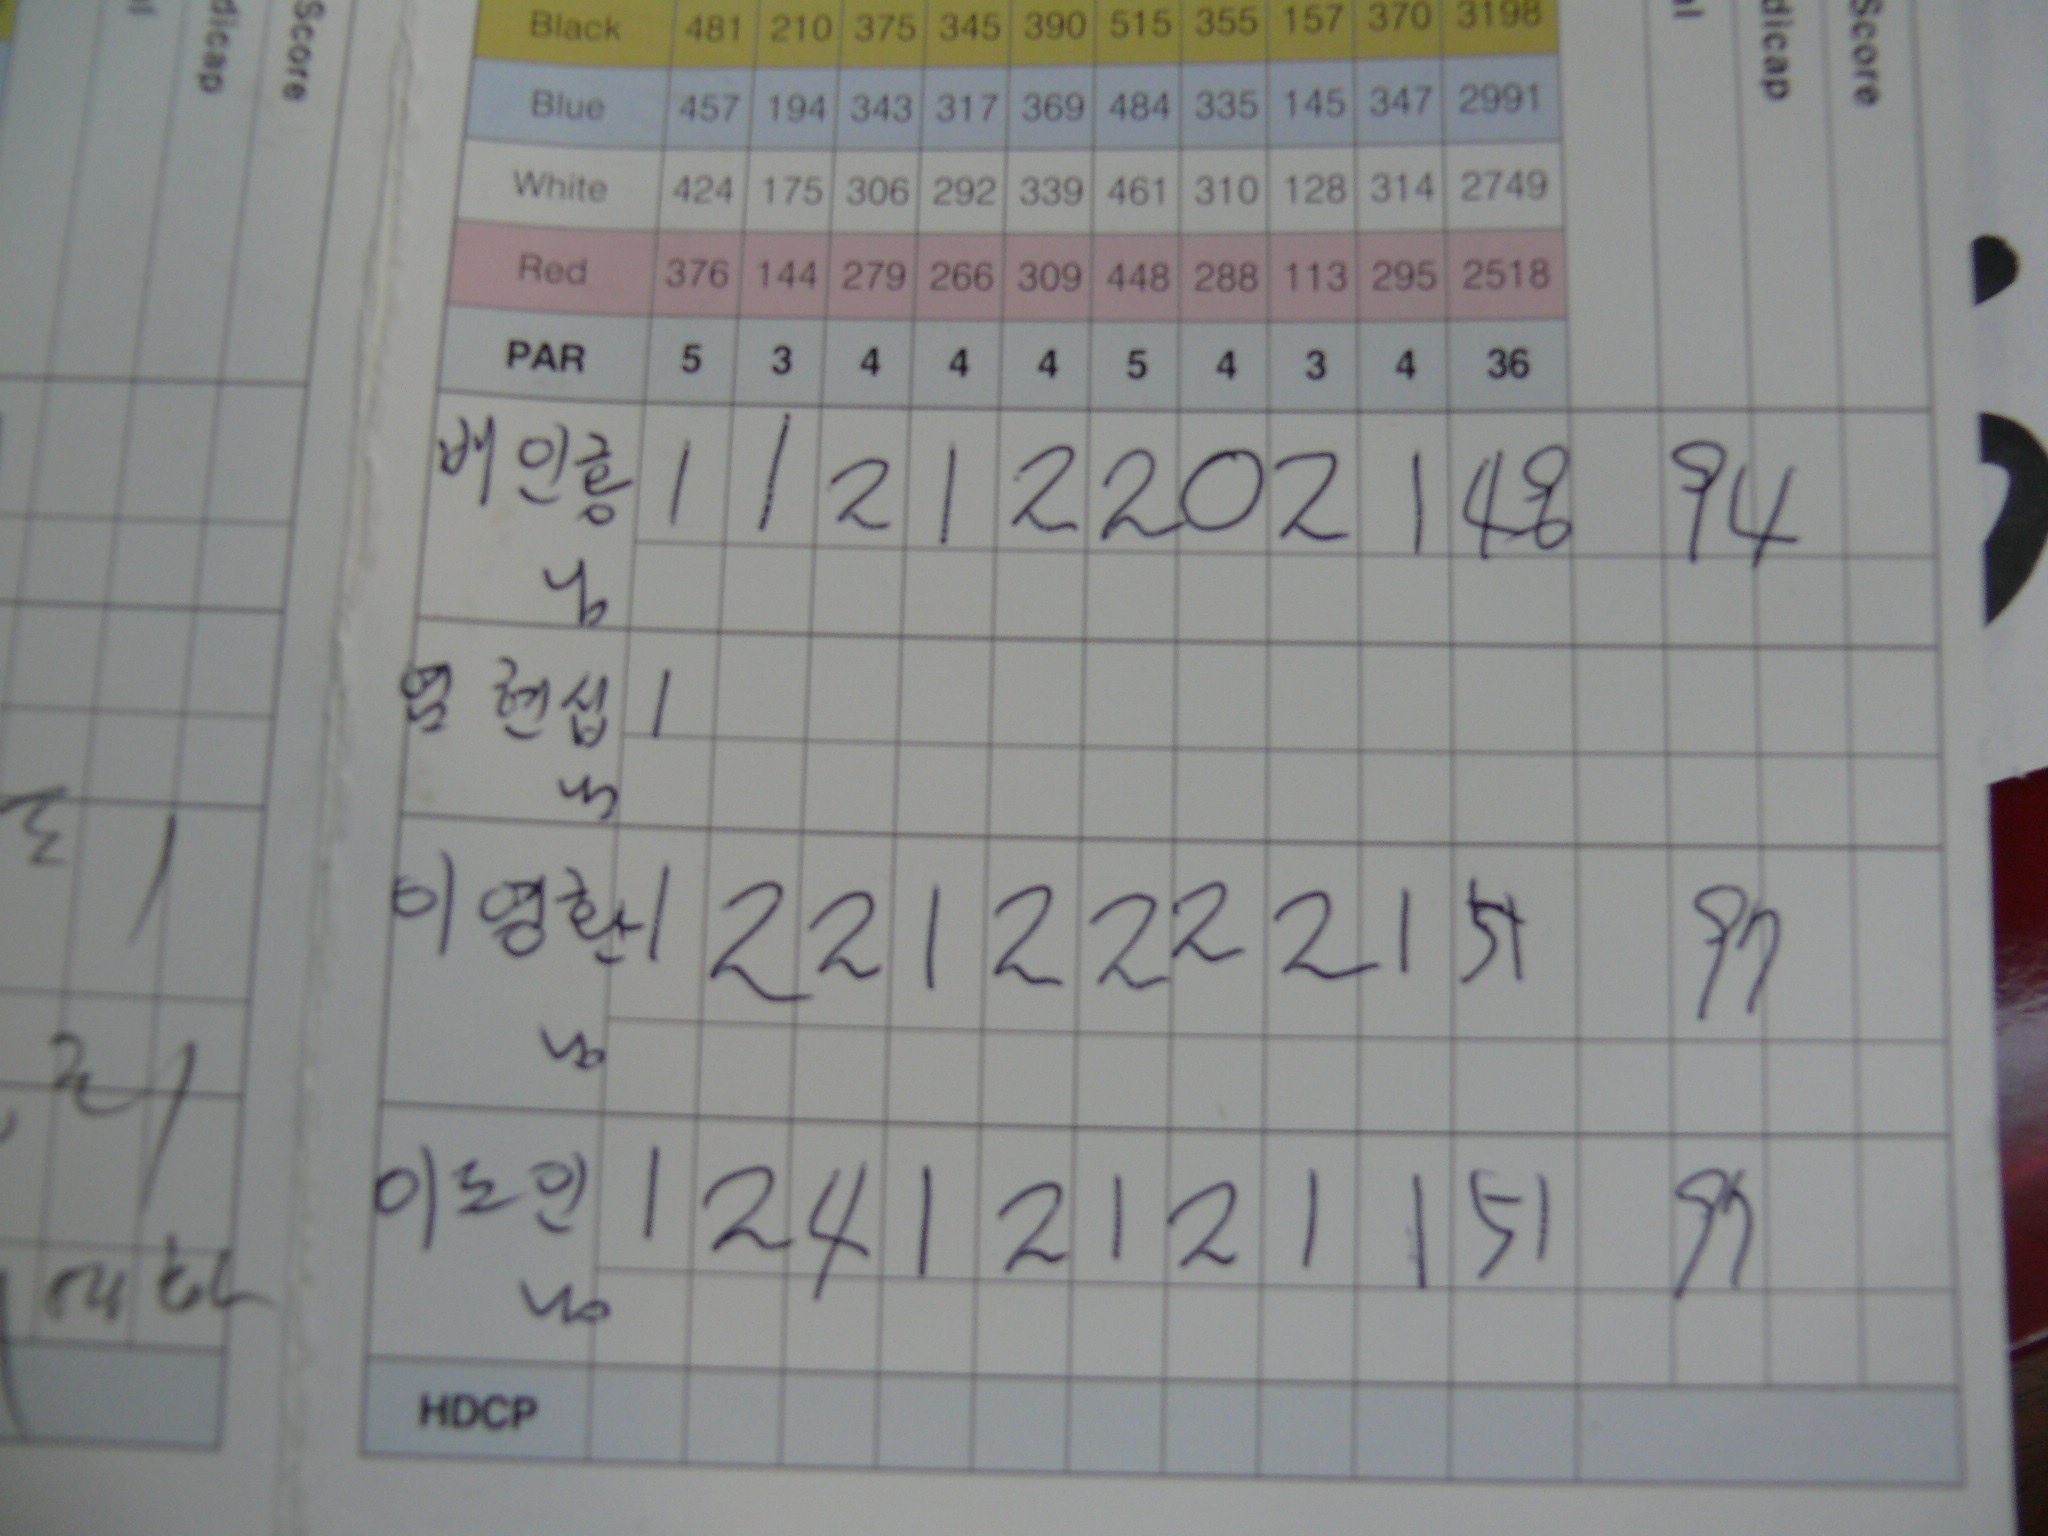 Score
dicap
Score
dicap
Black 481 210 375 345 390 515 355 157 370 3198
Blue 457 194 343 317 369 484 335 145 347 2991
White 424 175 306 292 339 461 310 128 314 2749
Red 376 144 279 266 309 448 288 113 295 2518
PAR 5 3 4 4 4 5 4 3 4 36
배인흥 1 1 2 1 2 2 0 2 1 48 94
님
염현섭 1
님
이영환 1 2 2 1 2 2 2 2 1 51 97
님
이노인 1 2 4 1 2 1 2 1 1 51 97
님
HDCP